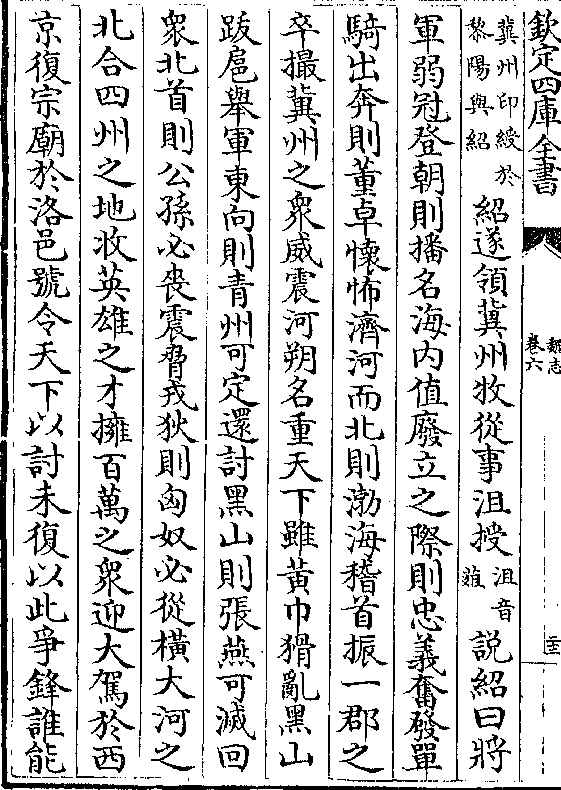 欽定四庫全書
魏志
卷六
冀州印綬於
黎陽與紹
紹遂領冀州牧從事沮授
沮音
菹
說紹曰將
軍弱冠登朝則播名海內值廢立之際則忠義奮發單
騎出奔則董卓懷怖濟河而北則渤海稽首振一郡之
卒撮冀州之衆威震河朔名重天下雖黃巾猾亂黑山
跋扈舉軍東向則青州可定還討黑山則張燕可滅回
衆北首則公孫必喪震脅戎狄則匈奴必從橫大河之
北合四州之地收英雄之才擁百萬之衆迎大駕於西
京復宗廟於洛邑號令天下以討未復以此爭鋒誰能